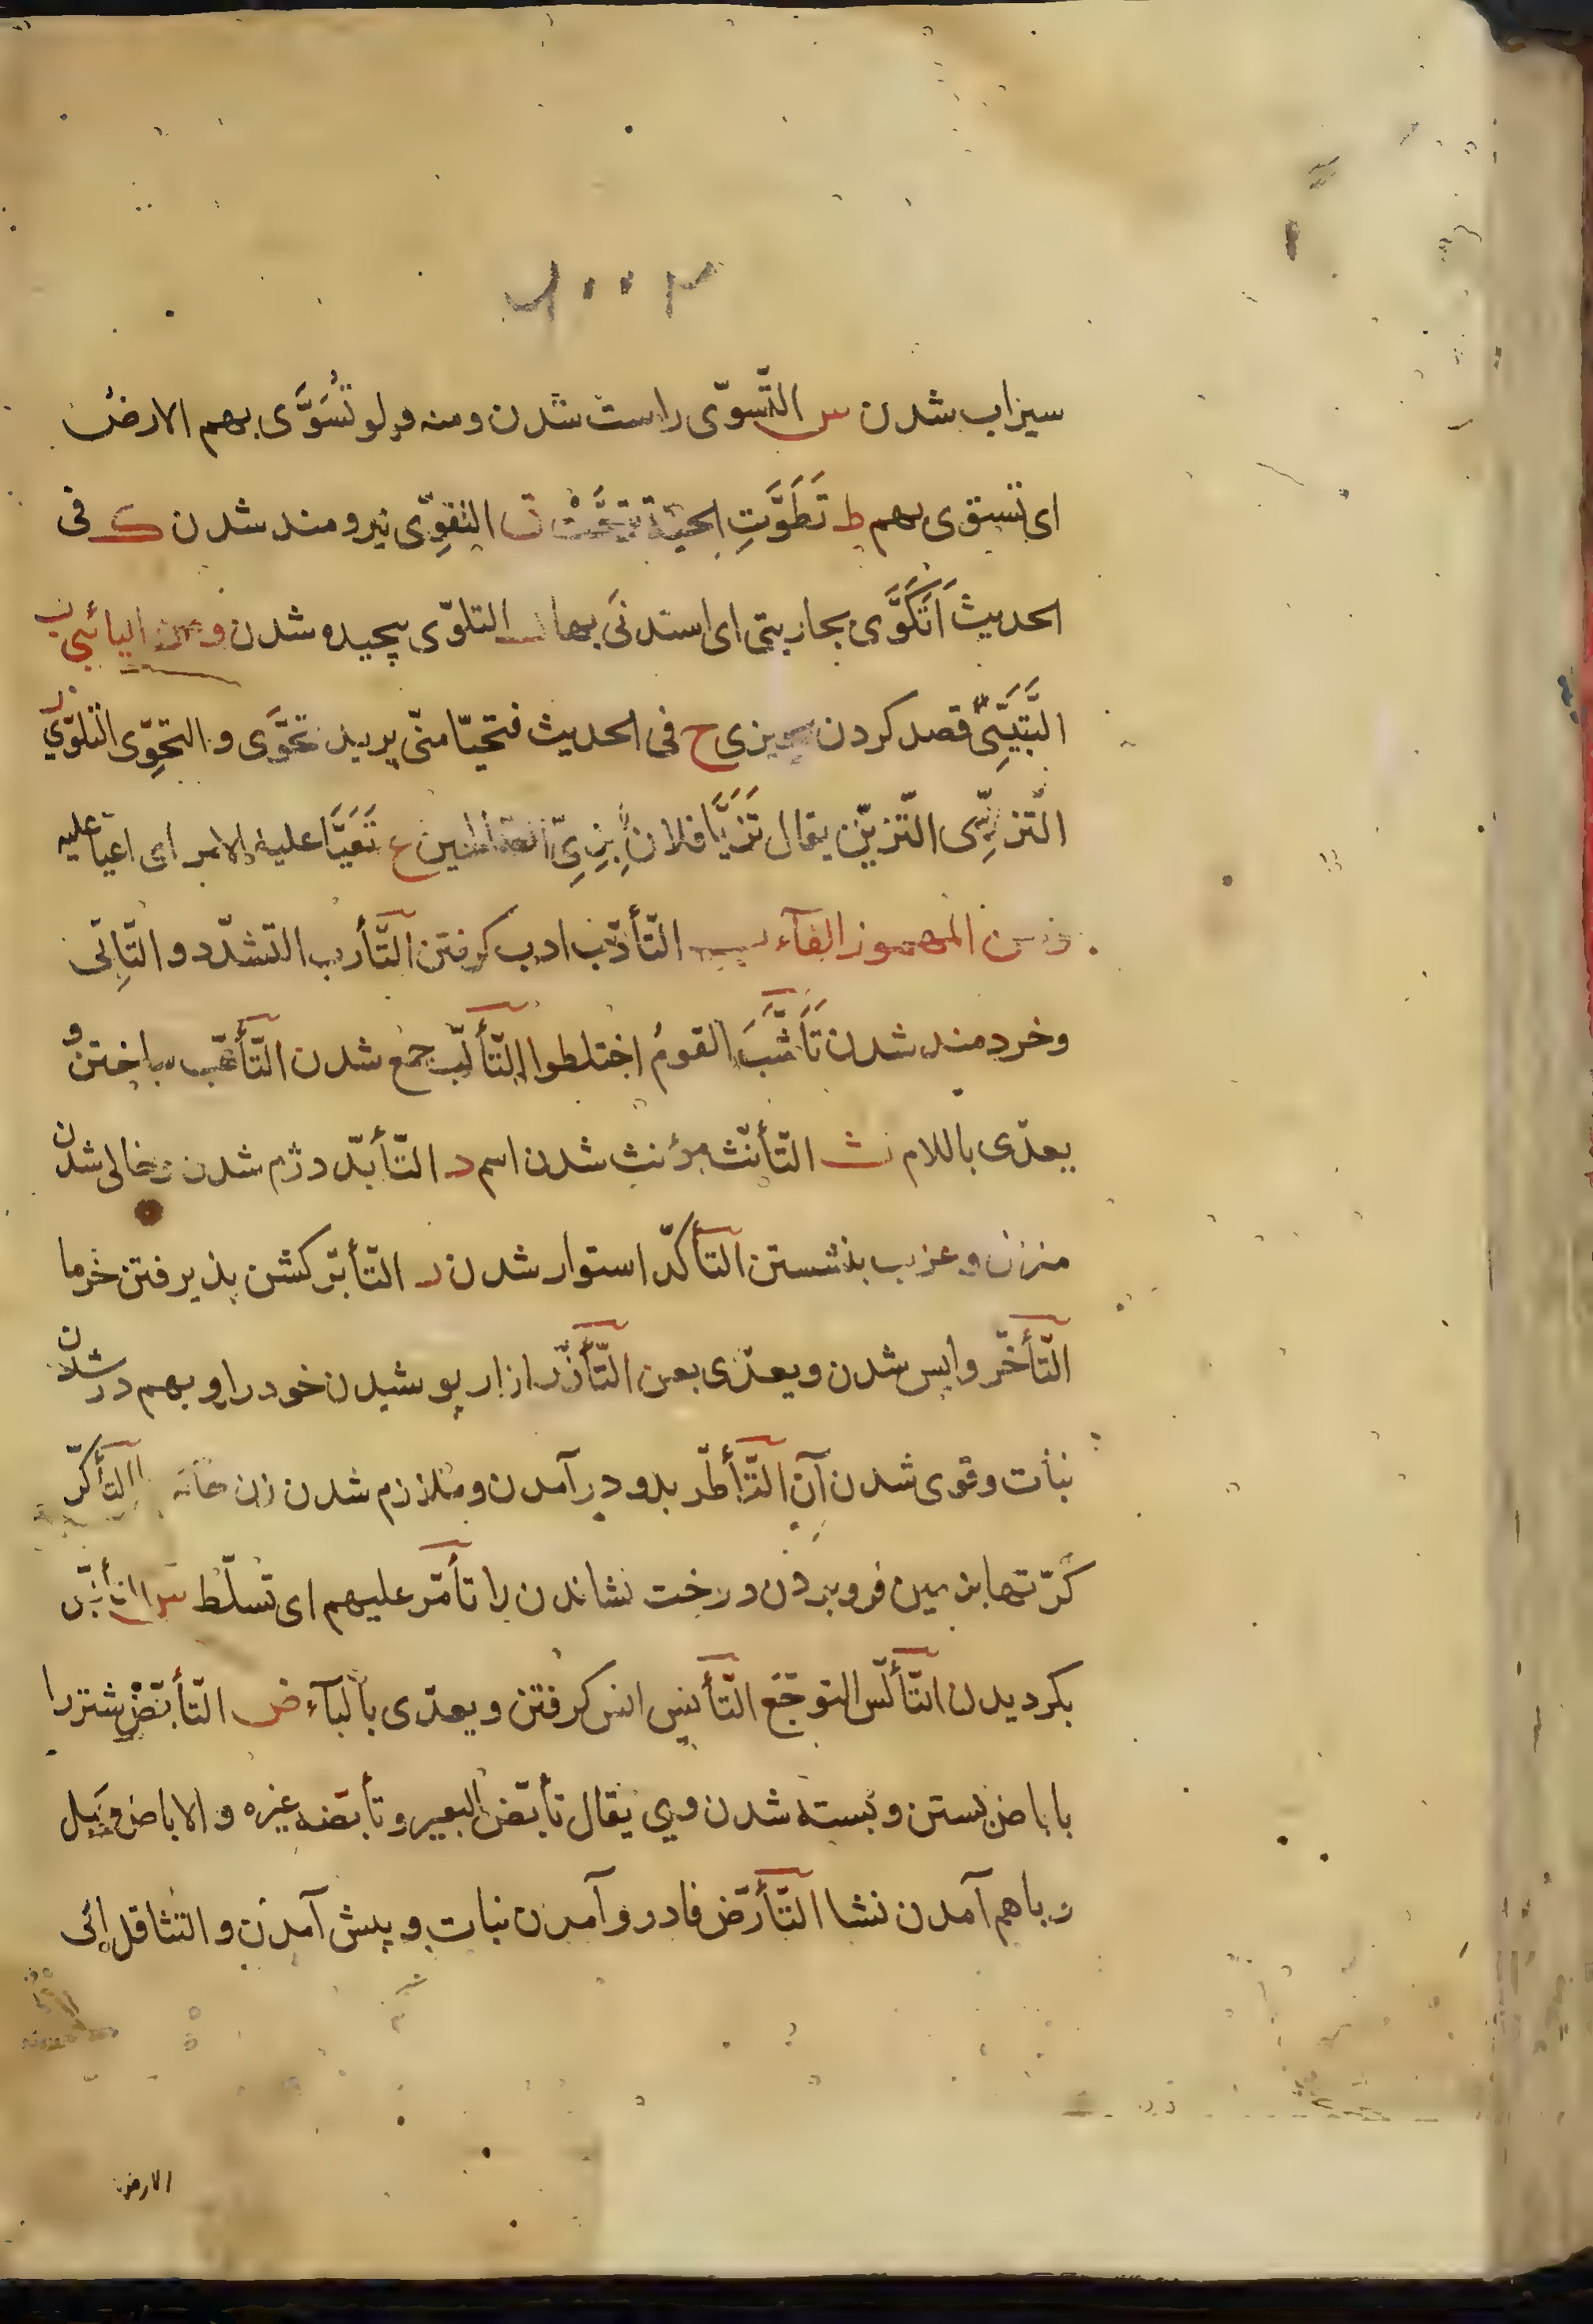 سیراب شدن س التّسوّی راست شدن ومنه ولو تُسَوَّی بهم الارضُ
ای تستوی بهم ط تَطَوَّتِ الحیّة تحوَّتْ ق التقوِّی نیرومند شدن ک فی
الحدیث اَتَکَوَّی بجاریتی ای استدفَی بها ل التلوّی پیچیده شدن ومن الیائی ب
التَّبَیِّی قصد کردن چیزی ح فی الحدیث فتحیّا منّی یرید تحَوَّی و التحوِّی التلوّی ز
التّزیِّی التّزیّن یقال تَزَیَّا فلانٌ بِزِیِّ ع تَعَیَّا علیه الامر ای اعیا علیه
ومن المهموز الفآء ب التّأدّب ادب کرفتن التّأرب التشدّد و التّأتی
وخردمند شدن تَأَشَّبَ القومُ اختلطوا التّألّب جمع شدن التّأهّب ساختن و
یعدّی باللام ث التّأنّث مؤنث شدن اسم د التّأبّد دژم شدن وخالی شدن
منزل وعزب بنشستن التّأکّد استوار شدن ر التّأبّر کشن پذیرفتن خرما
التّأخّر واپس شدن ویعدّی بعن التّأزّر ازار پوشیدن خود را وبهم در شدن
نبات وقوی شدن آن التّأطّر بدو در آمدن وملازم شدن زن خانه التأکّر
کرّتها بزمین فرو بردن درخت نشاندن را تأمّر علیهم ای تسلّط س
بکردیدن التّألّس التوجّع التّأنّس انس کرفتن ویعدّی بالبآء ض التّأبّض شتر را
باباض بستن و بسته شدن وی یقال تأبّض البعیر و تأبّضه غیره و الاباض
وباهم آمدن نشا التّأرّض فادرو آمدن نبات وپیش آمدن و التثاقل الی
الارض